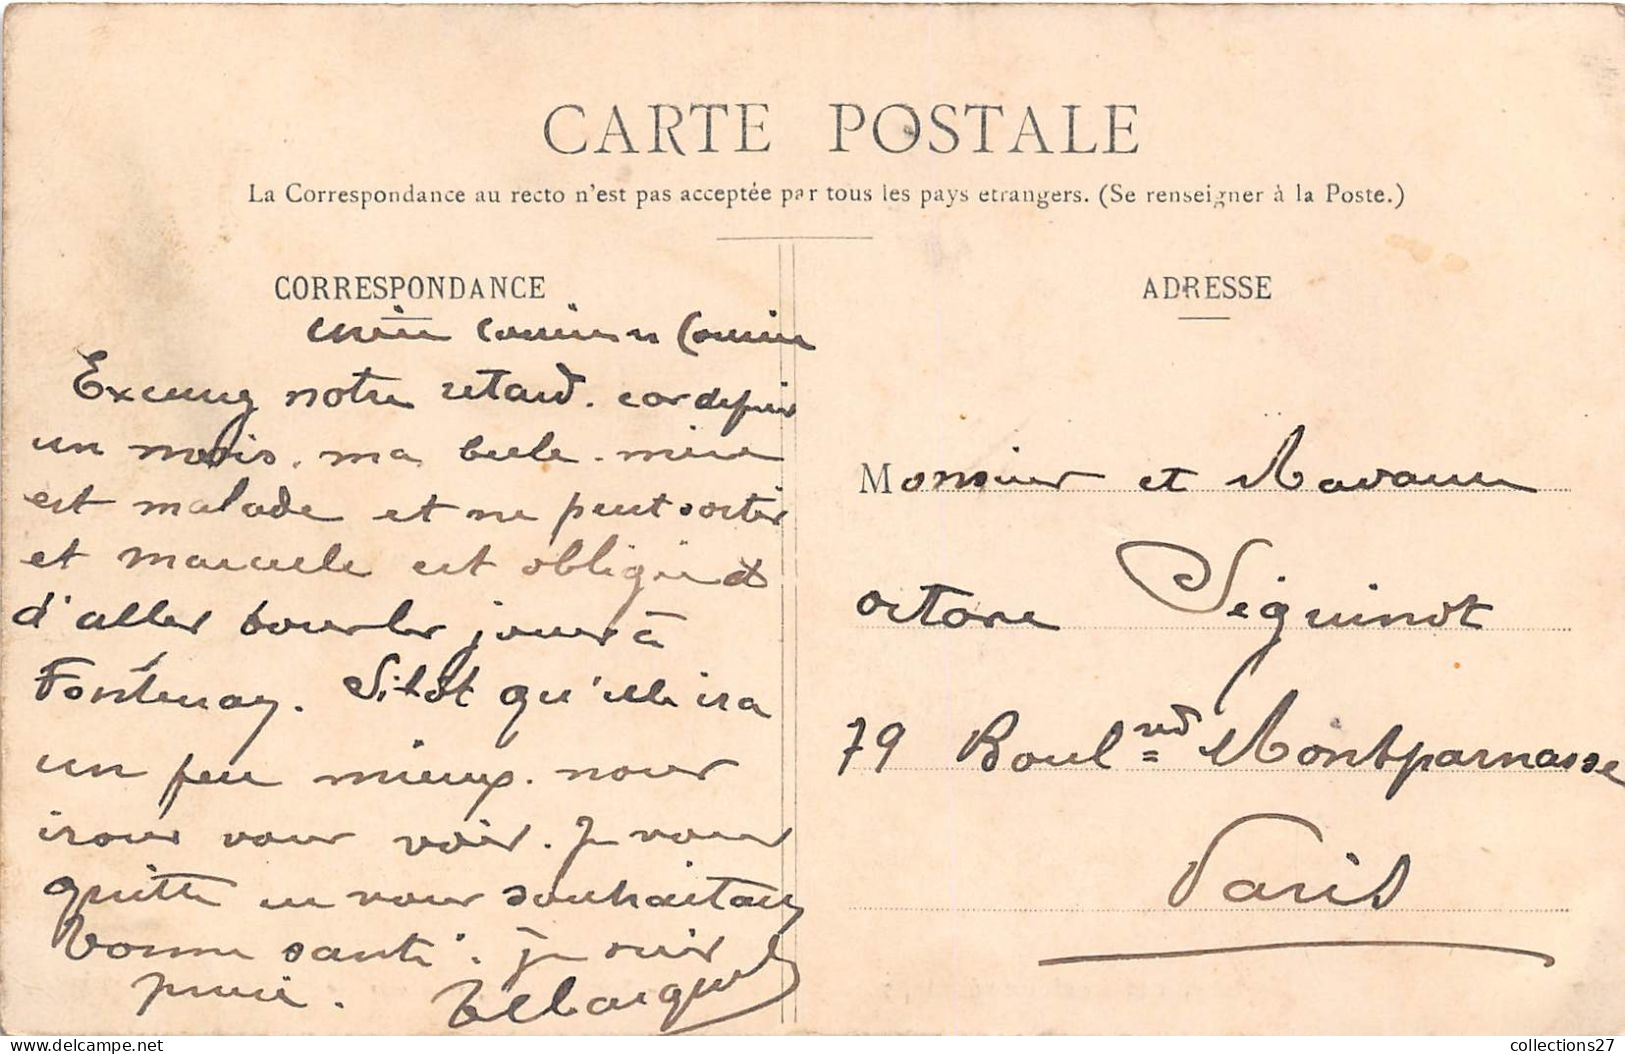 CARTE POSTALE
La Correspondance au recto n'est pas acceptée par tous les pays etrangers. (Se renseigner à la Poste.)
CORRESPONDANCE
Cousine
notre retard. car depuis
un mois. ma belle. mère
est malade et ne peut sortir
et marcelle est obligée
d'aller tour les jours à
Fontenay. Sitot qu'elle ira
un peu mieux. nour
irons vour voir. Je vour
quitte en vour souhaitant
bonne santé. je suis
ADRESSE
Monsieur et Madame
octave Séguinot
79 Boul.vd Montparnasse
Paris
collections27